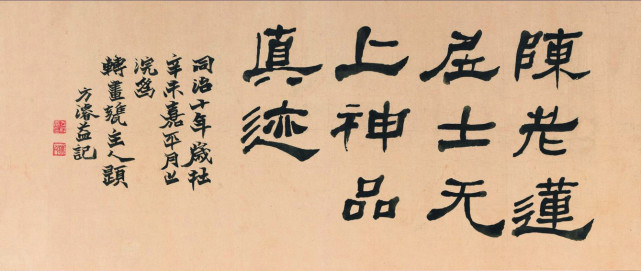 陳老蓮
居士无
上神品
真迹
同治十年歲在
辛未嘉平月上
浣為
轉畫主人題
方濬益記